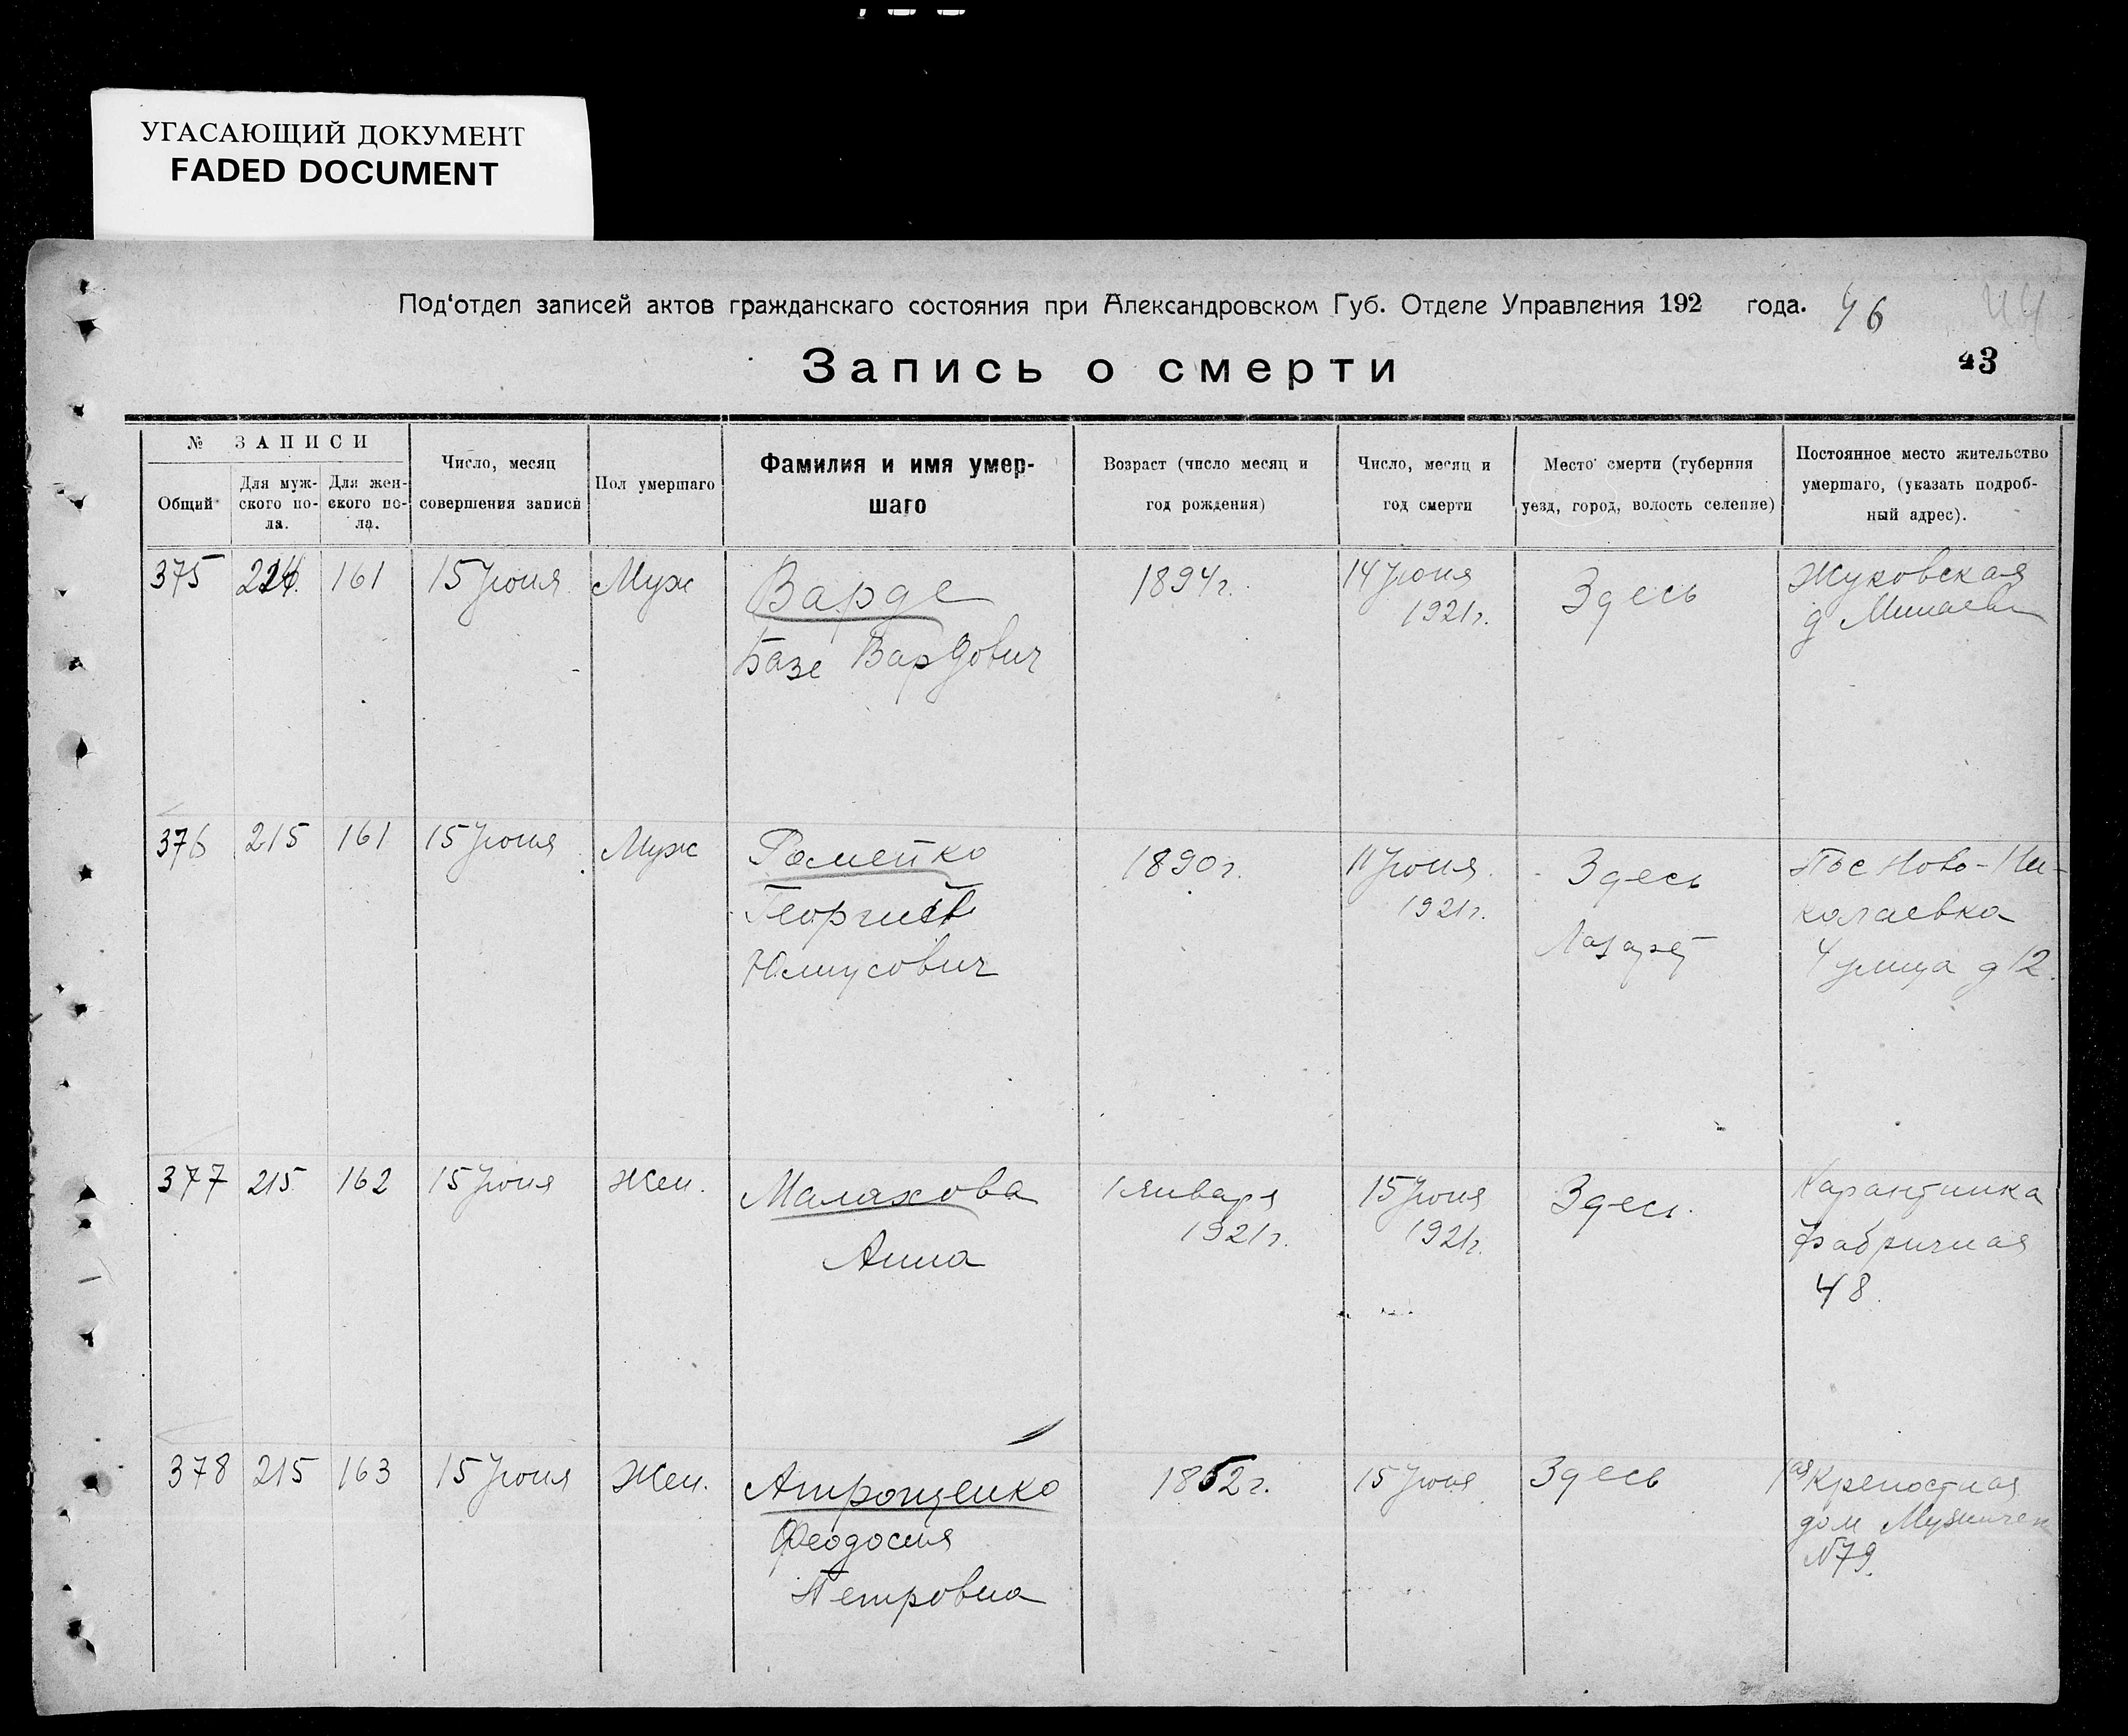 УГАСАЮЩИЙ ДОКУМЕНТ
FADED DOCUMENT
Под'отдел записей актов гражданскаго состояния при Александровском Губ. Отделе Управления 192 года. 46
44
Запись о смерти
43
№ ЗАПИСИ
Общий
Для муж-
ского по-
ла.
Для жен-
ского по-
ла.
Число, месяц
совершения записи
Пол умершаго
Фамилия и имя умер-
шаго
Возраст (число месяц и
год рождения)
Число, месяц и
год смерти
Место смерти (губерния
уезд, город, волость селение)
Постоянное место жительство
умершаго, (указать подроб-
ный адрес).
375
214
161
15 Июня
Муж
Варде
Базе Вардович
1894г.
14 Июня
1921г.
Здесь
Жуковская
д Минаева
376
215
161
15 Июня
Муж
Георгий
1890г.
11 Июня
1921г.
Здесь
Лазарет
Пос Ново-Ни-
колаевка
4 улица д 12.
377
215
162
15 Июня
Жен.
Малахова
Анна
1 января
1921г.
15 Июня
1921г.
Здесь.
Карантинка
Фабричная
48.
378
215
163
15 Июня
Жен.
Атрощенко
Феодосия
Петровна
1852г.
15 Июня
Здесь
1ая Крепостная
дом
N79.